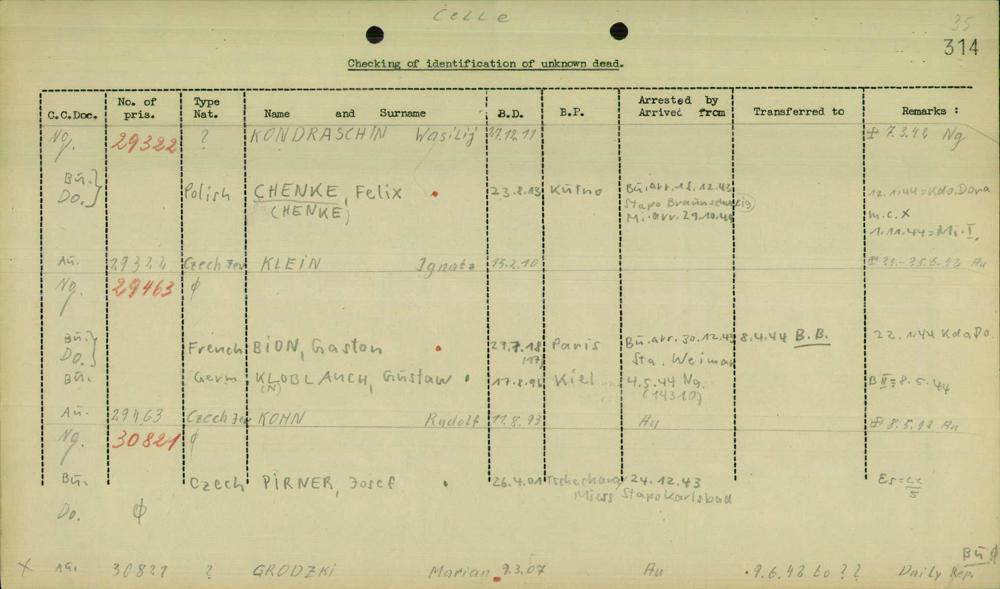 Celle
35
314
Checking of identification of unknown dead.
C.C.Doc. No. of pris. Type Nat. Name and Surname B.D. B.P. Arrested by Arrived from Transferred to Remarks :
Ng. 29322 ? KONDRASCHIN Wasilij 27.12.11 7.3.42 Ng
Bū.} Polish CHENKE, Felix 23.8.13 Kutno Bū.arr.18.12.43 12.1.44=Kdo.Dora
Do.} (HENKE) Stapo Braunschweig m.c.X
Mi.arr.29.10.44 1.11.44=Mi.I.
Au. 29322 Czech Jew KLEIN Ignatz 15.2.10 Au
Ng. 29463 ϕ
Bū.} French BION, Gaston 27.7.18 Paris Bū.arr.30.12.43 8.4.44 B.B. 22.1.44 KdoDo.
Do.} (17) Sta. Weimar
Bū. Germ KLOBLAUCH, Gustaw Kiel 4.5.44 Ng. 8.5.44
(N) (14310)
Au. 29463 Czech Jew KOHN Rudolf 11.8.93 Au 8.5.42 Au
Ng. 30821 ϕ
Bū. Czech PIRNER, Josef 26.4.01 24.12.43
Miess Stapo Karlsbad
Do. ϕ
Bū ϕ
X Au. 30821 ? GRODZKI Marian 9.3.07 Au 9.6.42 to ?? Daily Rep.